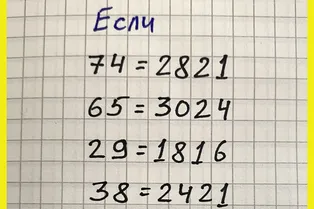 Если
74=2821
65=3024
29=1816
38=2421